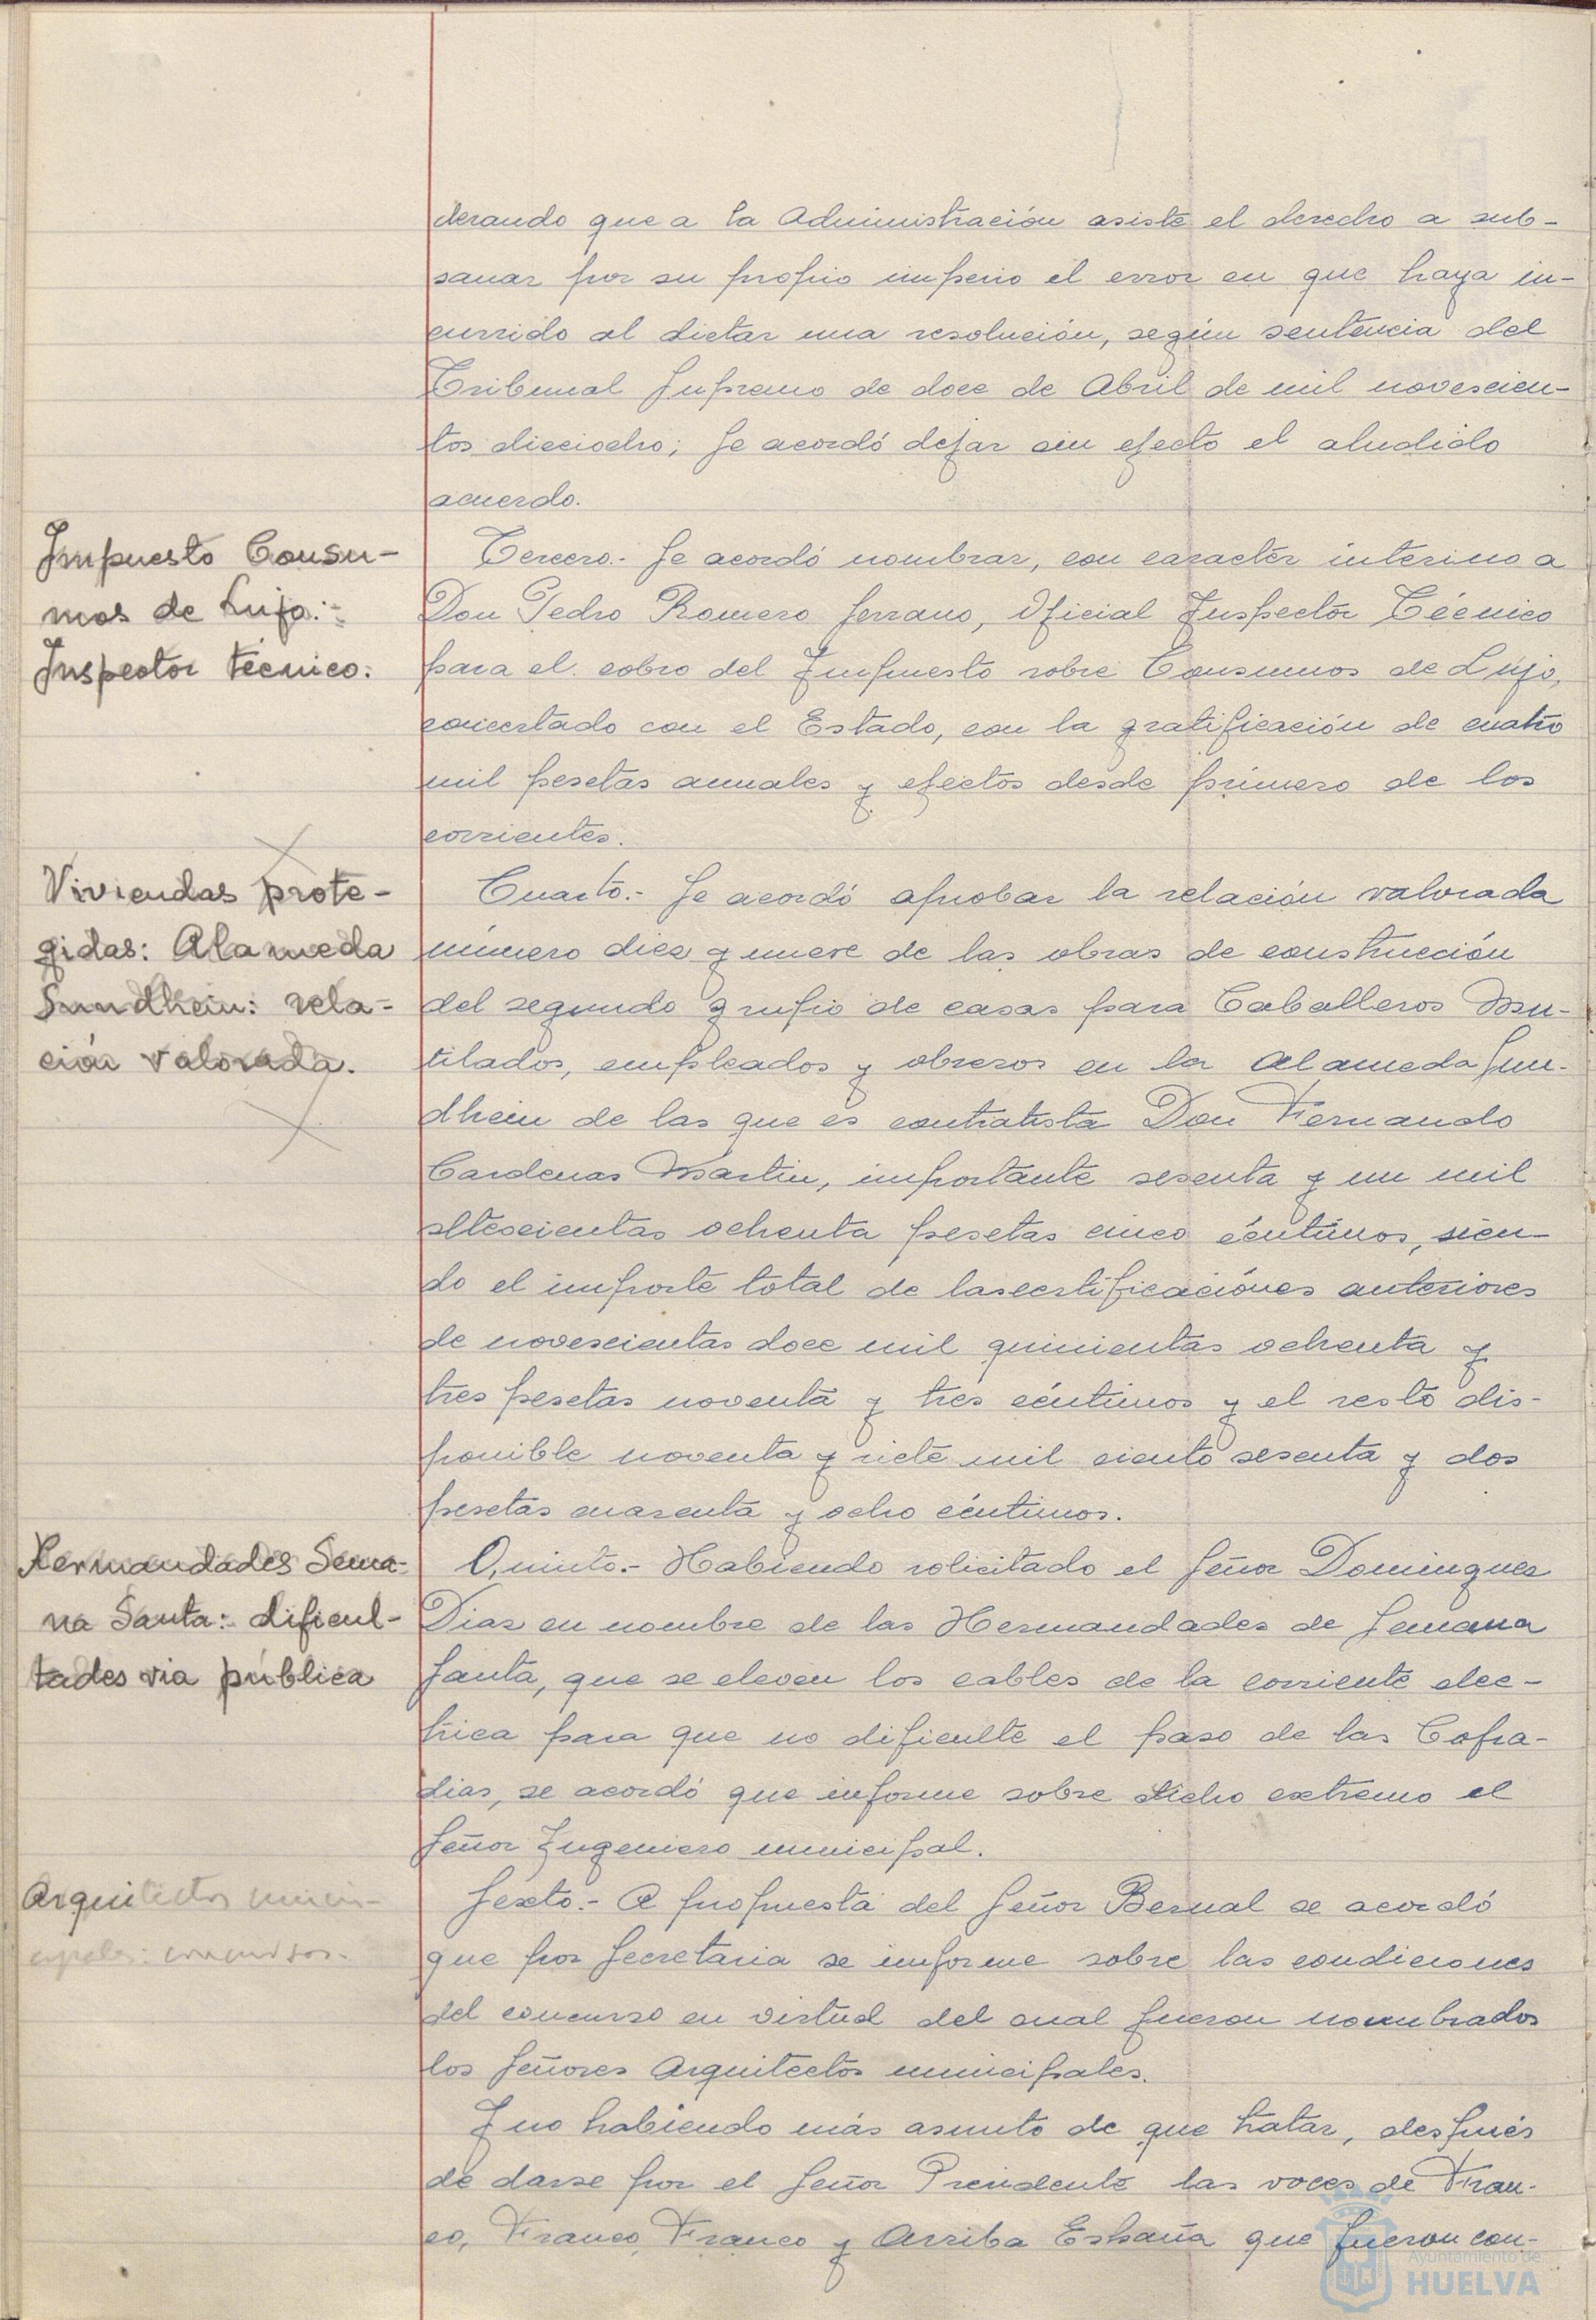 derando que a la Administración asiste el derecho a sub-
sanar por su propio imperio el error en que haya in-
currido al dictar una resolución, según sentencia del
Tribunal Supremo de doce de Abril de mil novescien-
tos dieciocho; Se acordó dejar sin efecto el aludido
acuerdo.
Impuesto Consu-
mos de Lujo:-
Inspector técnico:
Tercero.- Se acordó nombrar, con caracter interino a
Don Pedro Romero Serrano, Oficial Inspector Técnico
para el cobro del Impuesto sobre Consumos de Lujo,
concertado con el Estado, con la gratificación de cuatro
mil pesetas anuales y efectos desde primero de los
corrientes.
Viviendas prote-
gidas: Alameda
Sundhein: rela-
ción valorada.
Cuarto.- Se acordó aprobar la relación valorada
número diez y nueve de las obras de construcción
del segundo grupo de casas para Caballeros Mu-
tilados, empleados y obreros en la Alameda Sun-
dhein de las que es contratista Don Fernando
Cardenas Martin, importante sesenta y un mil
setescientas ochenta pesetas cinco céntimos, sien-
do el importe total de las certificaciónes anteriores
de novescientas doce mil quinientas ochenta y
tres pesetas noventa y tres céntimos y el resto dis-
ponible noventa y siete mil ciento sesenta y dos
pesetas cuarenta y ocho céntimos.
Hermandades Sema-
na Santa: dificul-
tades via pública
Quinto.- Habiendo solicitado el Señor Dominguez
Diaz en nombre de las Hermandades de Semana
Santa, que se eleven los cables de la corriente elec-
trica para que no dificulte el paso de las Cofra-
dias, se acordó que informe sobre dicho extremo el
Señor Ingeniero municipal.
Arquitectos muni-
cipales: concursos.-
Sexto.- A propuesta del Señor Bernal se acordó
que por Secretaria se informe sobre las condiciones
del concurso en virtud del cual fueron nombrados
los Señores Arquitectos municipales.
Y no habiendo más asunto de que tratar, después
de darse por el Señor Presidente las voces de Fran-
co, Franco, Franco y Arriba España que fueron con-
Ayuntamiento de
HUELVA